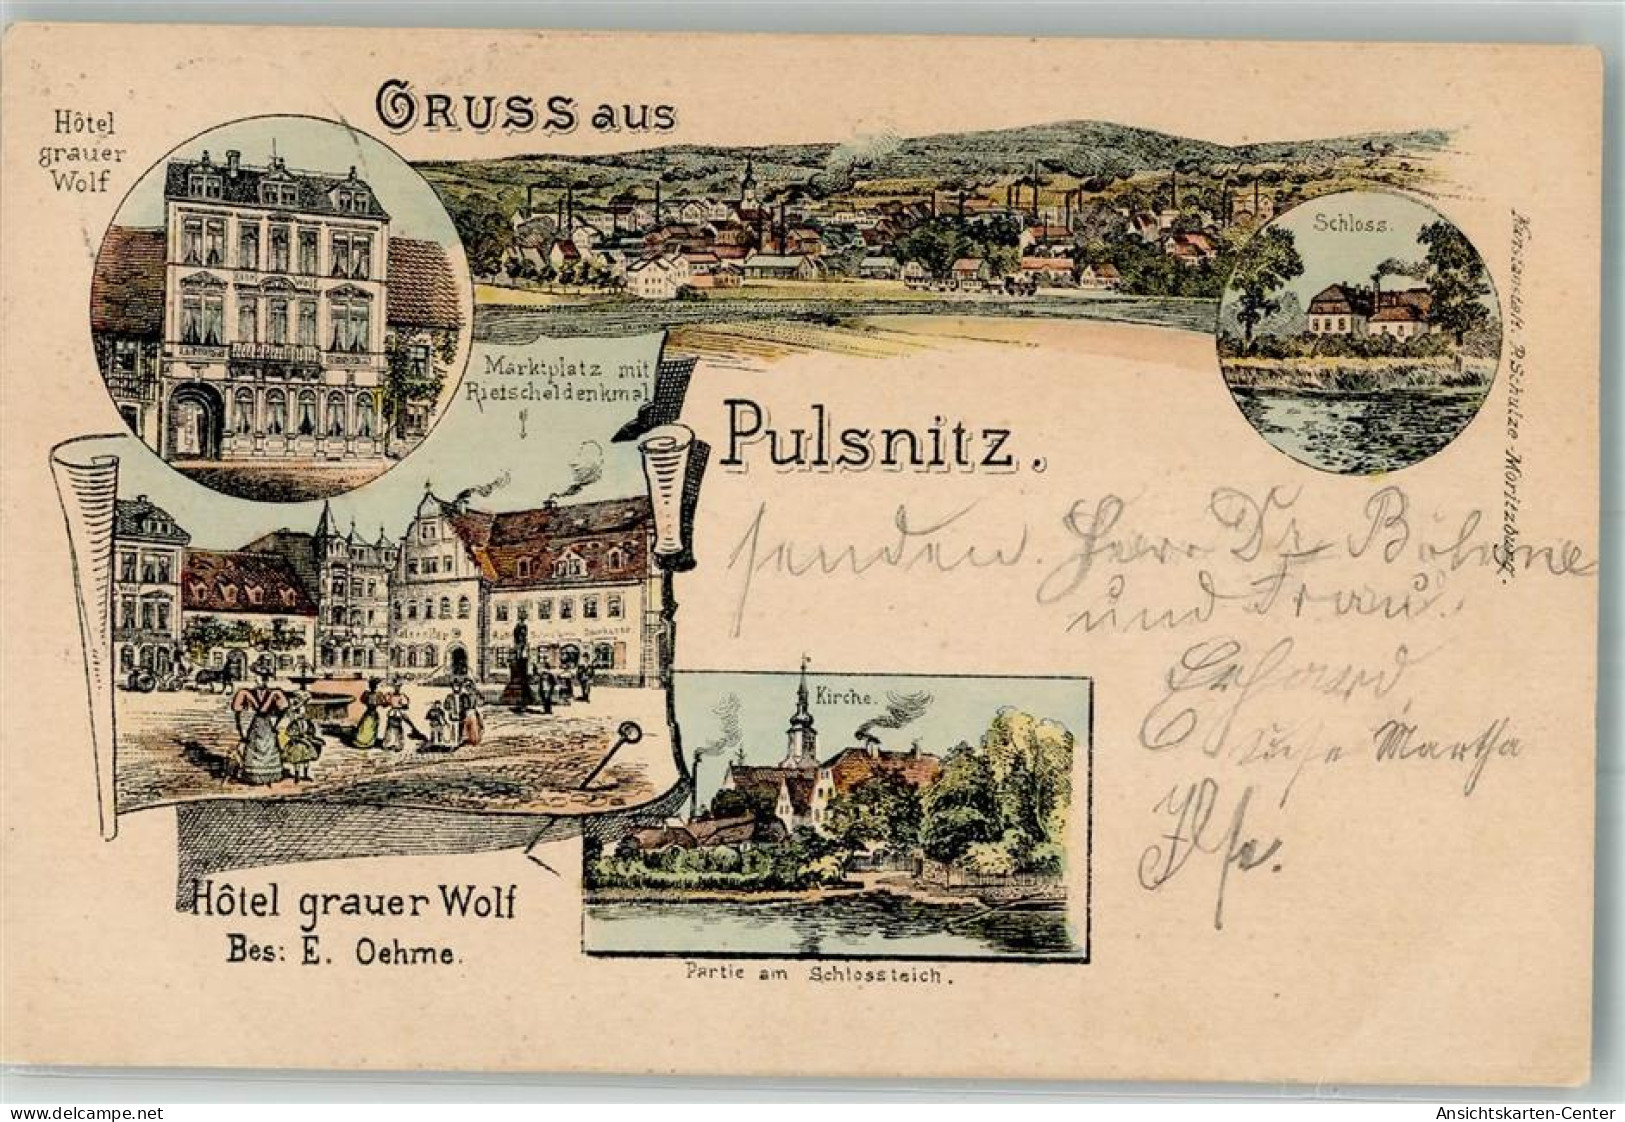 GRUSS aus
Hôtel
grauer
Wolf
Schloss.
Marktplatz mit
Rietscheldenkmal
Pulsnitz.
Kunstanstalt P. Schulze Moritzburg.
senden. Herr Dr Böhme
und Frau.
Gerhard
Martha
Ilse.
Kirche.
Hôtel grauer Wolf
Bes: E. Oehme.
Partie am Schlossteich.
delcampe.net
Ansichtskarten-Center